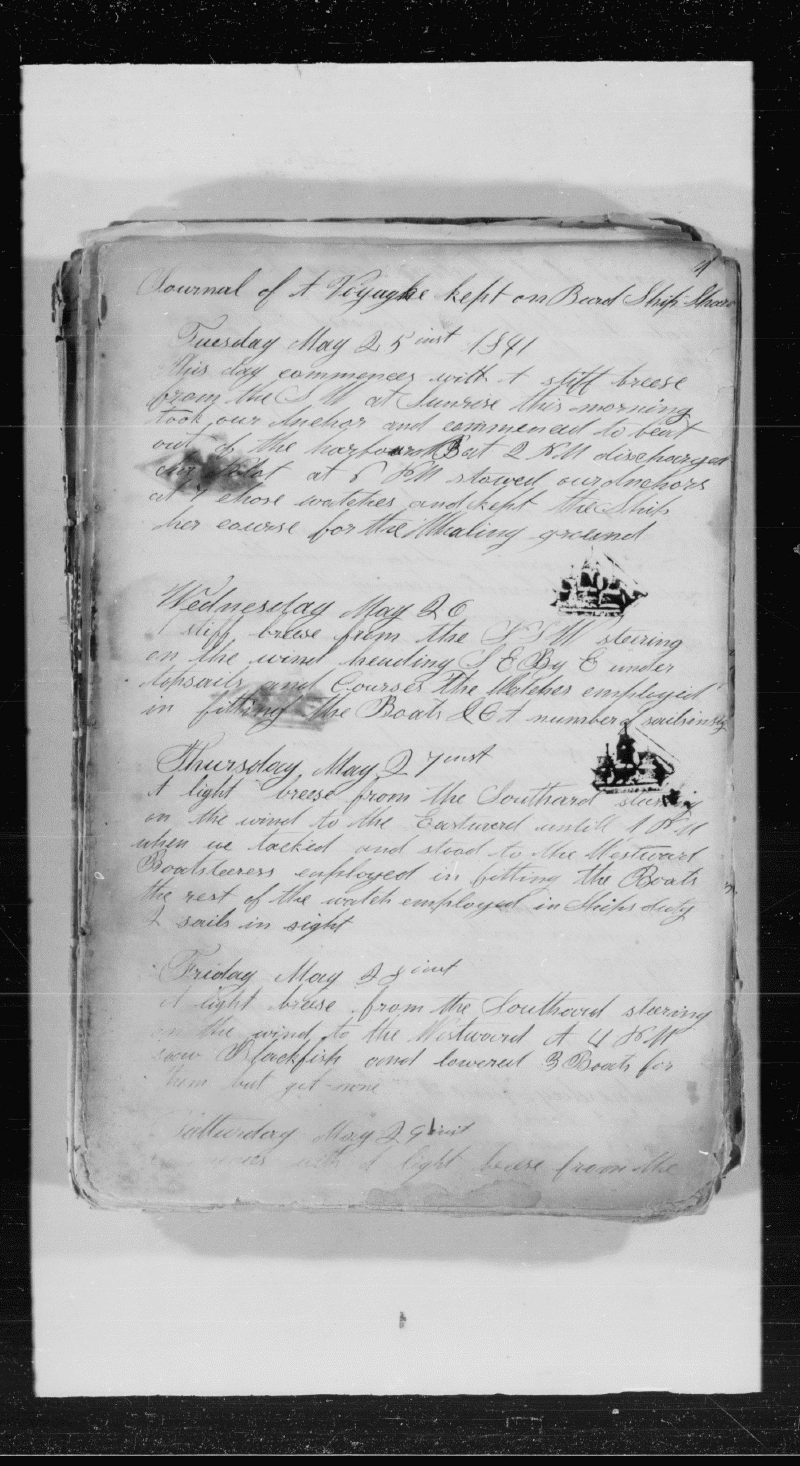 Journal of A Voyaghe kept on Board Ship Sharo
Tuesday May 25 inst 1841
This day commences with A stiff breeze
from the S W at Sunrise this morning
took our Anchor and commenced to beat
out of the harbour At 2 P M discharged
our Pilot at 6 P M stowed our Anchors
at 7 chose watches and kept the Ship
her course for the Whaling ground
Wednesday May 26
A stiff breeze from the S S W steering
on the wind heading S E By E under
topsails and Courses The Watches employed
in fitting the Boats &C A number of sails in sig
Thursday May 27 inst
A light breese from the Southard steering
on the wind to the Eastward untill 1 P M
when we tacked and stood to the Westward
Boatsteerers employed in fitting the Boats
the rest of the watch employed in Ships duty
2 sails in sight
Friday May 28 inst
A light breese from the Southard steering
on the wind to the Westward At 4 P M
saw Blackfish and lowered 3 Boats for
them but got none
Satturday May 29 inst
with A light breese from the